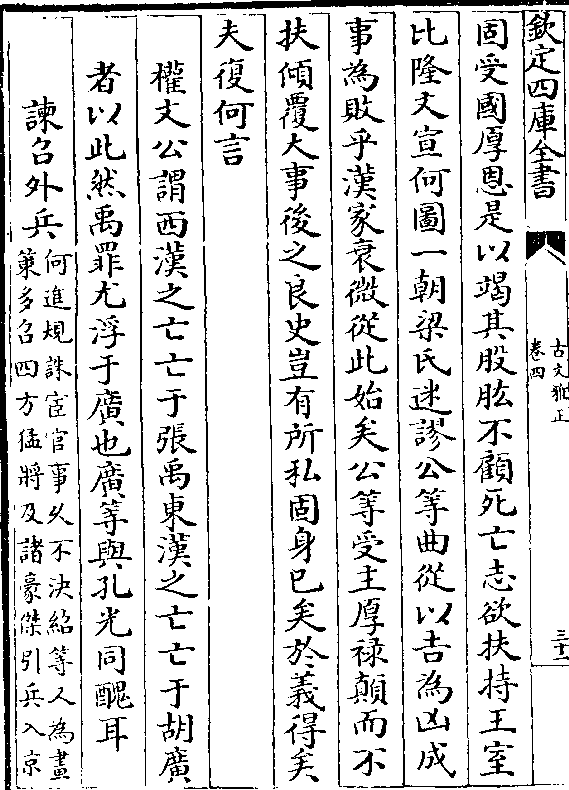 欽定四庫全書
古文雅正
卷四
三十二
固受國厚恩是以竭其股肱不顧死亡志欲扶持王室
比隆文宣何圖一朝梁氏迷謬公等曲從以吉為凶成
事為敗乎漢家衰微從此始矣公等受主厚祿顛而不
扶傾覆大事後之良史豈有所私固身已矣於義得矣
夫復何言
權文公謂西漢之亡亡于張禹東漢之亡亡于胡廣
者以此然禹罪尤浮于廣也廣等與孔光同醜耳
諫召外兵
何進規誅宦官事久不決紹等人為畫
策多召四方猛將及諸豪傑引兵入京